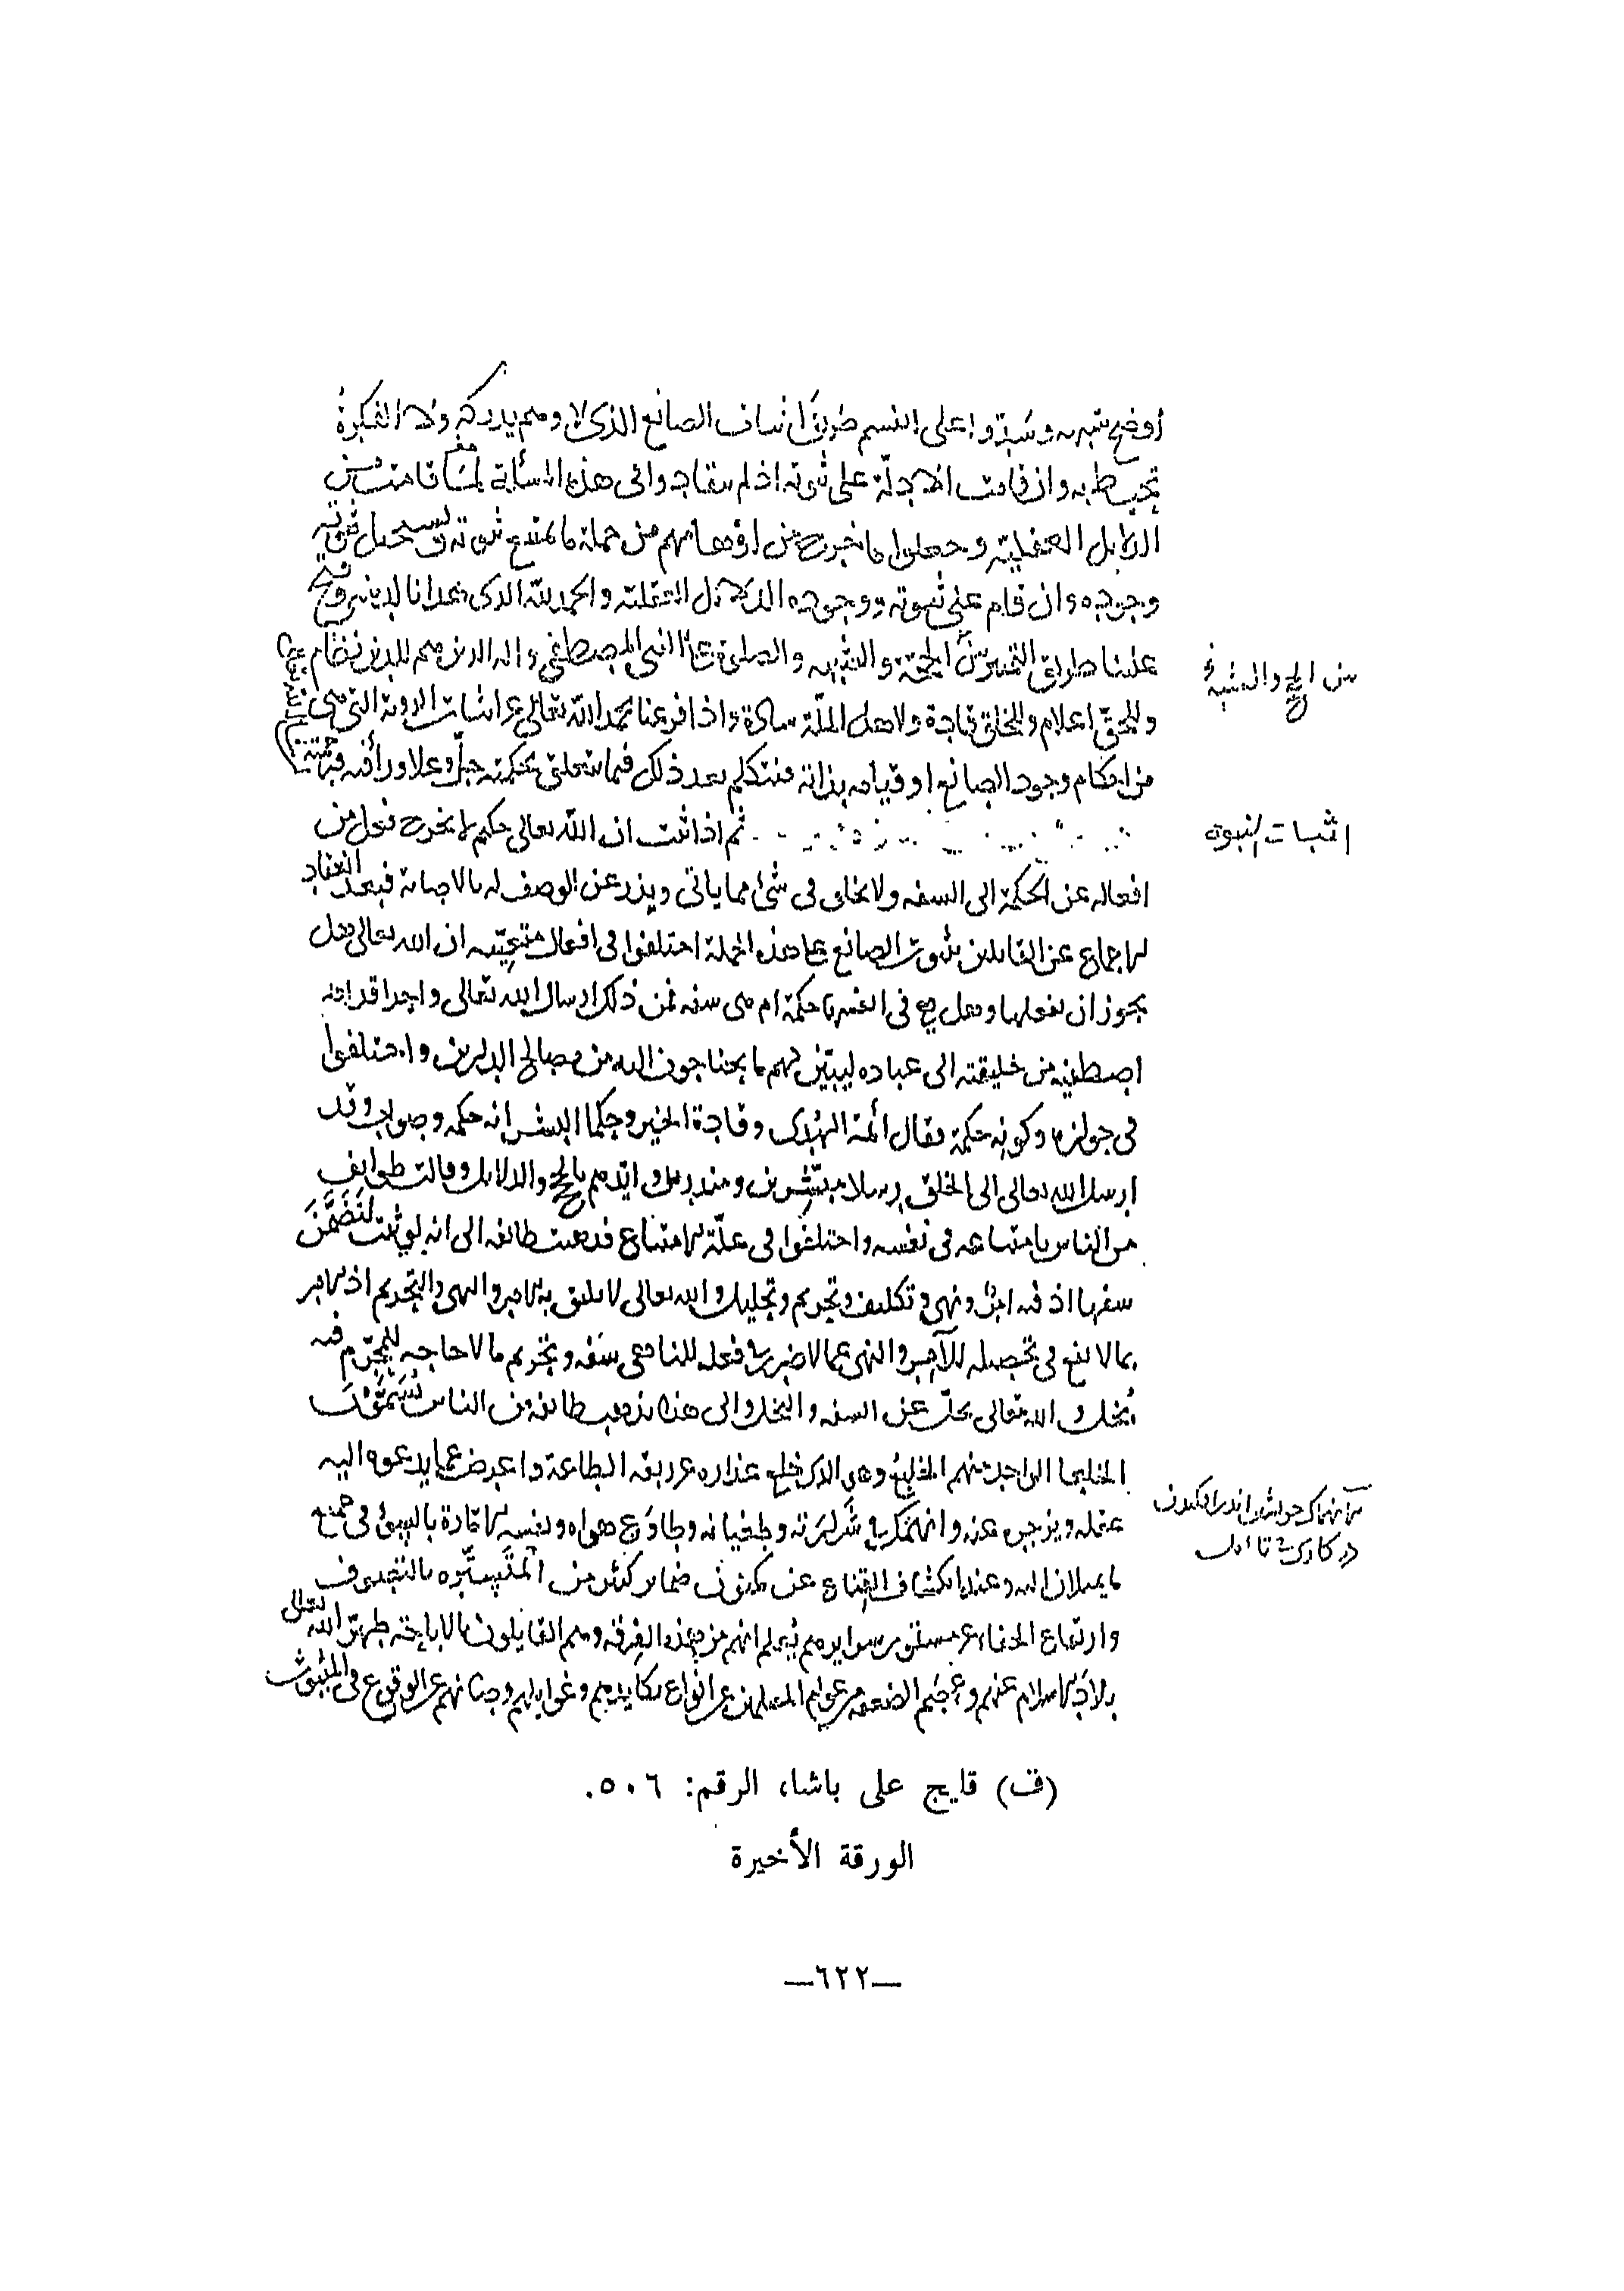 أوضح شبهه وسدّوا على انفسهم طريق اثبات الصانع الذى لا وهم يدركه ولا الفكرة
تحيط به وان قامت الادلّة على ثبوته اذ لم ينقادوا فى هذه المسألة لما قامت من
الدلايل العقلية وجعلوا ما خرج عن اوهامهم من جملة ما يمتنع ثبوته ويستحيل
وجوده وان قام على ثبوته ووجوده الدلائل العقلية والحمد لله الذى هدانا لدينه
علينا طريق التمييز بين الحجة والشبهه والصلوة على النبى المصطفى واله الذين هم للدين نظام
وللحق اعلام وللخلق قادة ولاهل الملّة سادة واذا فرغنا بحمد الله تعالى عن اثبات الرؤية التى هى
من احكام وجود الصانع او قيامه بذاته فنتكلم بعد ذلك فيما يتعلق بحكمته جلّ وعلا ورأفته
بين الحجج والشبه
ثم اذا ثبت ان الله تعالى حكيم لا يخرج فعل من
اثبات النبوة
افعاله عن الحكمة الى السفه ولا يخلى فى شئ مما ياتى ويذر عن الوصف له بالاصابة فبعد انعقاد
الاجماع عن القايلين بثبوت الصانع على هذه الجملة اختلفوا فى افعال متعيّنه ان الله تعالى هل
يجوز ان يفعلها وهل هى فى انفسها حكمة ام هى سفه فمن ذلك ارسال الله تعالى واحدا قد
اصطفيه من خليقته الى عباده ليبيّن لهم ما يحتاجون اليه من مصالح الدارين واختلفوا
فى جوازه وكونه حكمة فقال أئمة الهدى وقادة الخير وحكما البشر انه حكمه وصواب وقد
ارسل الله تعالى الى الخلق رسلا مبشّرين ومنذرين وايّدهم بالحجج والدلايل وقالت طوايف
من الناس بامتناعه فى نفسه واختلفوا فى علّة الامتناع فذهبت طائفه الى انه لو ثبت لتضمّن
سفها اذ فيه امر ونهى وتكليف وتحريم وتحليل والله تعالى لا يليق به الامر والنهى والتحريم اذ الامر
بما لا نفع فى تحصيله للآمر والنهى عما لا ضرر فى فعله للناهى سفه وتحريم ما لا حاجه للمحرّم فيه
بخل والله تعالى يجلّ عن السفه والبخل والى هذا يذهب طائفه من الناس يسمّون
الخلعا الواحد منهم الخليع وهو الذى خلع عذاره عن ربقه الطاعة واعرض عما يدعوه اليه
عقله ويزجره عنه وانهمك فى شرارته وطغيانه وطاوع هواه ونفسه الامّارة بالسوء فى جميع
در كارى تا
ما يميلان اليه وعند انكشاف القناع عن مكنون ضماير كثير من المتستّره بالتصوف
وارتفاع الخفاء عن مستور سرايرهم يُعلم انهم من هذه الفرقه وهم القايلون بالاباحة طهّر الله تعالى
بلاد الاسلام عنهم وعصم الضعفه من عوام المسلمين عن انواع مكايدهم وغوايلهم وصانهم عن الوقوع فى المبثوث
(ف) قليج على باشا، الرقم: ٥٠٦.
الورقة الأخيرة
—٦٢٢—